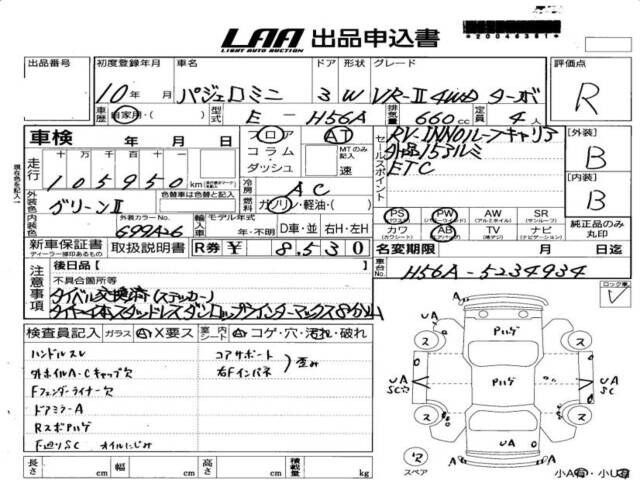 LAA 出品申込書
LIGHT AUTO AUCTION
出品番号 初度登録年月 車名 ドア 形状 グレード 評価点
10年 月 パジェロミニ 3 W VR-Ⅱ 4WD ターボ R
車歴 自家用・( ) 型式 E - H56A 排気量 660 cc 定員 4 人
車検 年 月 日 フロア AT
RV-INNOルーフキャリア
コラム・ダッシュ MTのみ記入 速
セールスポイント 15アルミ
ETC
【外装】 B
【内装】 B
走行 十万千百十一
105950 km
冷房 AC
外装色 グリーンⅡ 色替車は色替と記入
燃料 ガソリン・軽油・( )
内装色 外装カラーNo. 輸入車 モデル年式
年・不明 D車・並 右H・左H
PS パワステ PW パワーウィンドウ AW アルミホイル SR (サンルーフ)
カワ (カワシート) AB エアバッグ TV (純マジ) ナビ (ナビゲーション) 純正品のみ丸印
新車保証書 ディーラー捺印あるもの 取扱説明書 R券 ¥ 8,530
名変期限 月 日迄
車台No. H56A-5234934
ロック車
現在色を記入
注意事項 後日品【 】
不具合箇所等
タイベル交換済(ステッカー)
タイヤ4本スタッドレスダンロップウインターマックス8分山
検査員記入 ガラス A X要ス 室内 シート A コゲ・穴・汚れ・破れ
ハンドルスレ コアサポート
外ホイルA・Cキャップ欠 右Fインパネ 歪み
Fフェンダーライナー欠
ドアミラーA
RスポPハゲ
F廻りSC オイルにじみ
Pハゲ
UA
UA
SC
Pハゲ
UA
SC
UA
ス ス ス ス
スペア
長さ cm 幅 cm 高さ cm 積載量 kg
小A有・小U有